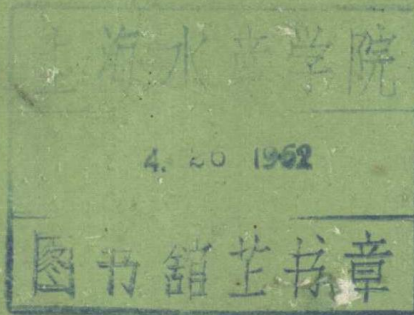 上海水产学院
4. 20 1962
图书舘芷书章